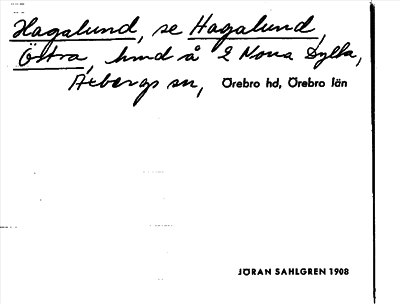 Hagalund, se Hagalund,
Östra, hmd å 2 Norra Bylta,
Axbergs sn, Örebro hd, Örebro län
JÖRAN SAHLGREN 1908